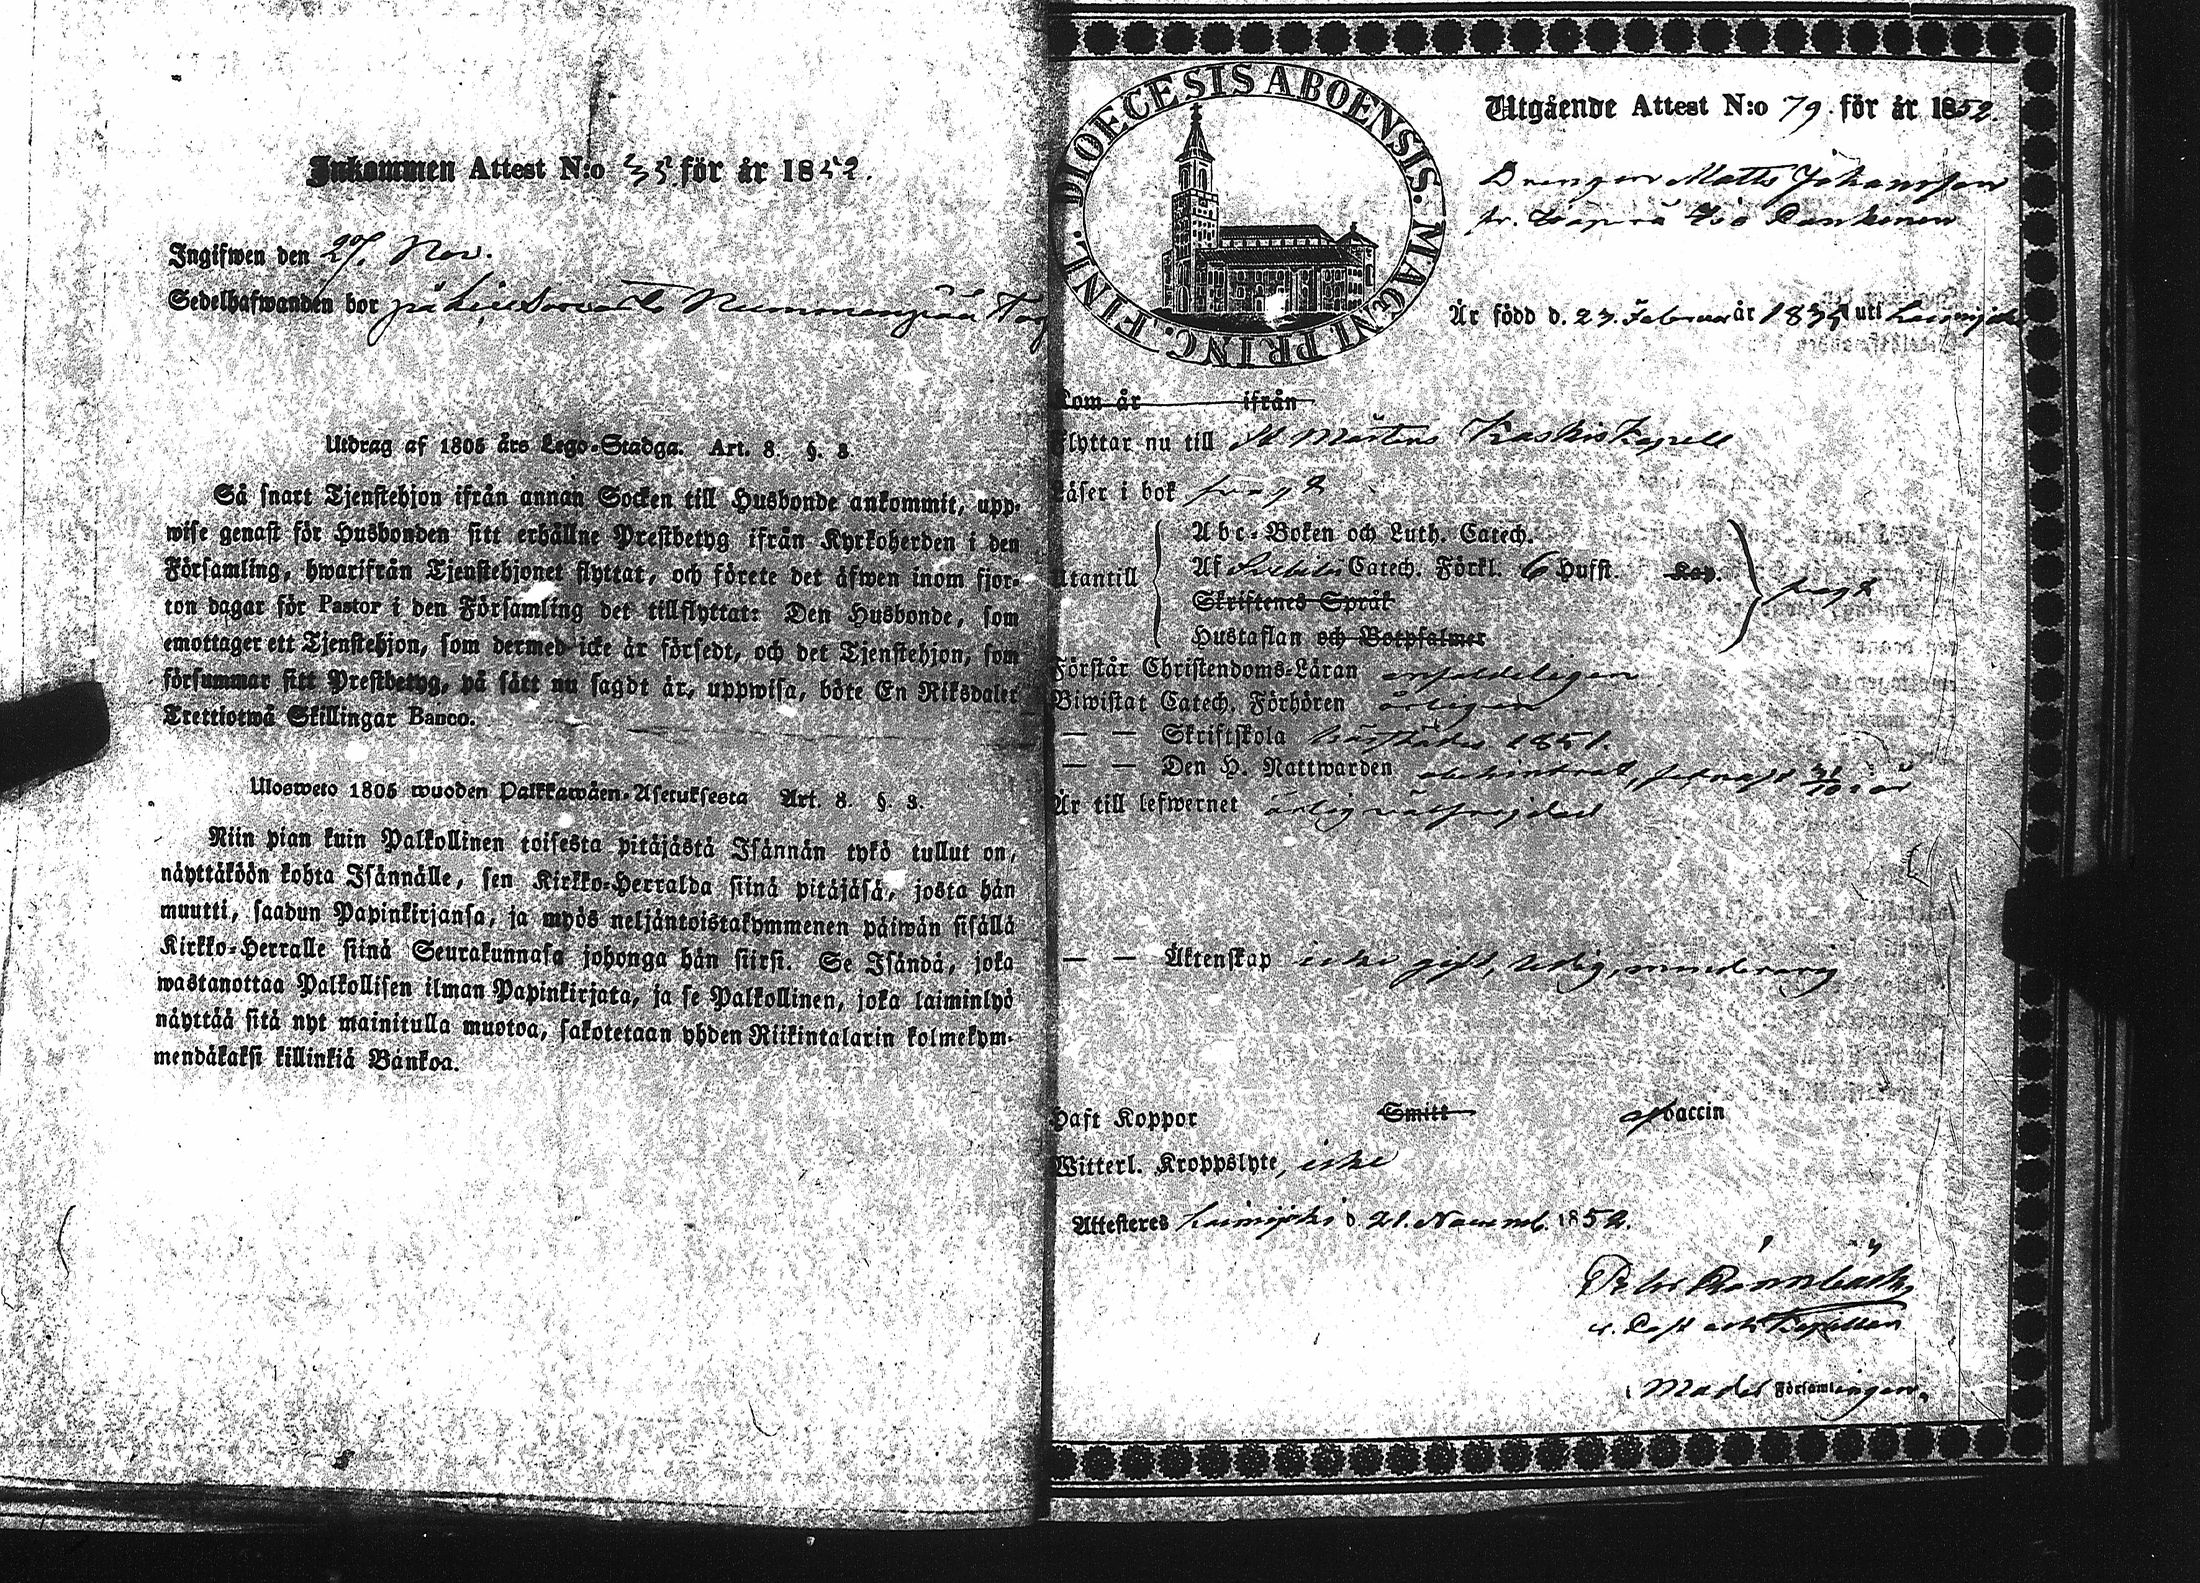 Inkommen Attest N:o 35 för år 1852.
Ingifwen den 29/ Nov.
Sedelhafwanden bor på Nummenpää
Utdrag af 1805 års Lego-Stadga. Art. 8. §. 3.
Så snart Tjenstehjon ifrån annan Socken till Husbonde ankommit, upp-
wise genast för Husbonden sitt erhållne Prestbetyg ifrån Kyrkoherden i den
Församling, hwarifrån Tjenstehjonet flyttat, och förete det äfwen inom fjor-
ton dagar för Pastor i den Församling det tillflyttat: Den Husbonde, som
emottager ett Tjenstehjon, som dermed icke är försedt, och det Tjenstehjon, som
försummar sitt Prestbetyg, på sätt nu sagdt är, uppwisa, böte En Riksdaler
Trettiotwå Skillingar Banco.
Ulosweto 1805 wuoden Palkkawäen-Asetuksesta Art. 8. §. 3.
Niin pian kuin Palkollinen toisesta pitäjästä Isännän tykö tullut on,
näyttäköön kohta Isännälle, sen Kirkko-Herralda siinä pitäjäsä, josta hän
muutti, saadun Papinkirjansa, ja myös neljäntoistakymmenen päiwän sisällä
Kirkko-Herralle siinä Seurakunnasa johonga hän siirsi. Se Isändä, joka
wastanottaa Palkollisen ilman Papinkirjata, ja se Palkollinen, joka laiminlyö
näyttää sitä nyt mainitulla muotoa, sakotetaan yhden Riikintalarin kolmekym-
mendäkaksi killinkiä Bankoa.
DIOECESIS ABOENSIS. MAGNI PRINC. FINL.
Utgående Attest N:o 79. för år 1852.
Drengen Matts Johansson
fr.
Är född d. 23. Februar år 183 uti
Kom år ifrån
Flyttar nu till St Mårtens Kapell
Läser i bok
Utantill
Abc-Boken och Luth. Catech.
Af Svebelii Catech. Förkl. 6 Hufst. Kap.
Skriftenes Språk
Hustaflan och Botpsalmer
Förstår Christendoms-Läran enfaldeligen
Biwistat Catech. Förhören årligen
— — Skriftskola 1851.
— — Den H. Nattwarden
Är till lefwernet ärlig
— — Äktenskap icke gift, ledig, minderårig
Haft Koppor Smitt af Vaccin
Witterl. Kroppslyte, icke
Attesteres d. 21. Novemb. 1852.
Rönnbäck
Kapellan
Församlingen.